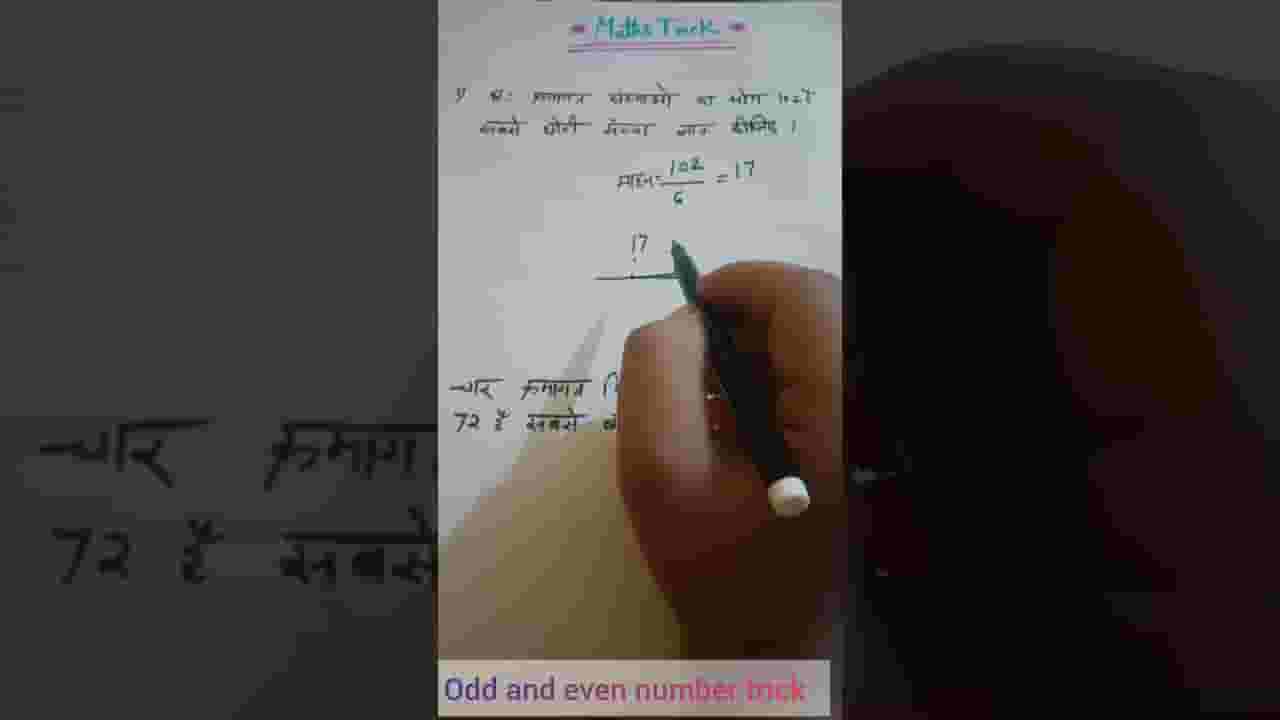 Maths Trick
छः क्रमागत संख्याओ का योग 102 है
सबसे छोटी संख्या ज्ञात कीजिए ।
माध्य = 102/6 = 17
17
चार क्रमागत
72 है सबसे
Odd and even number trick